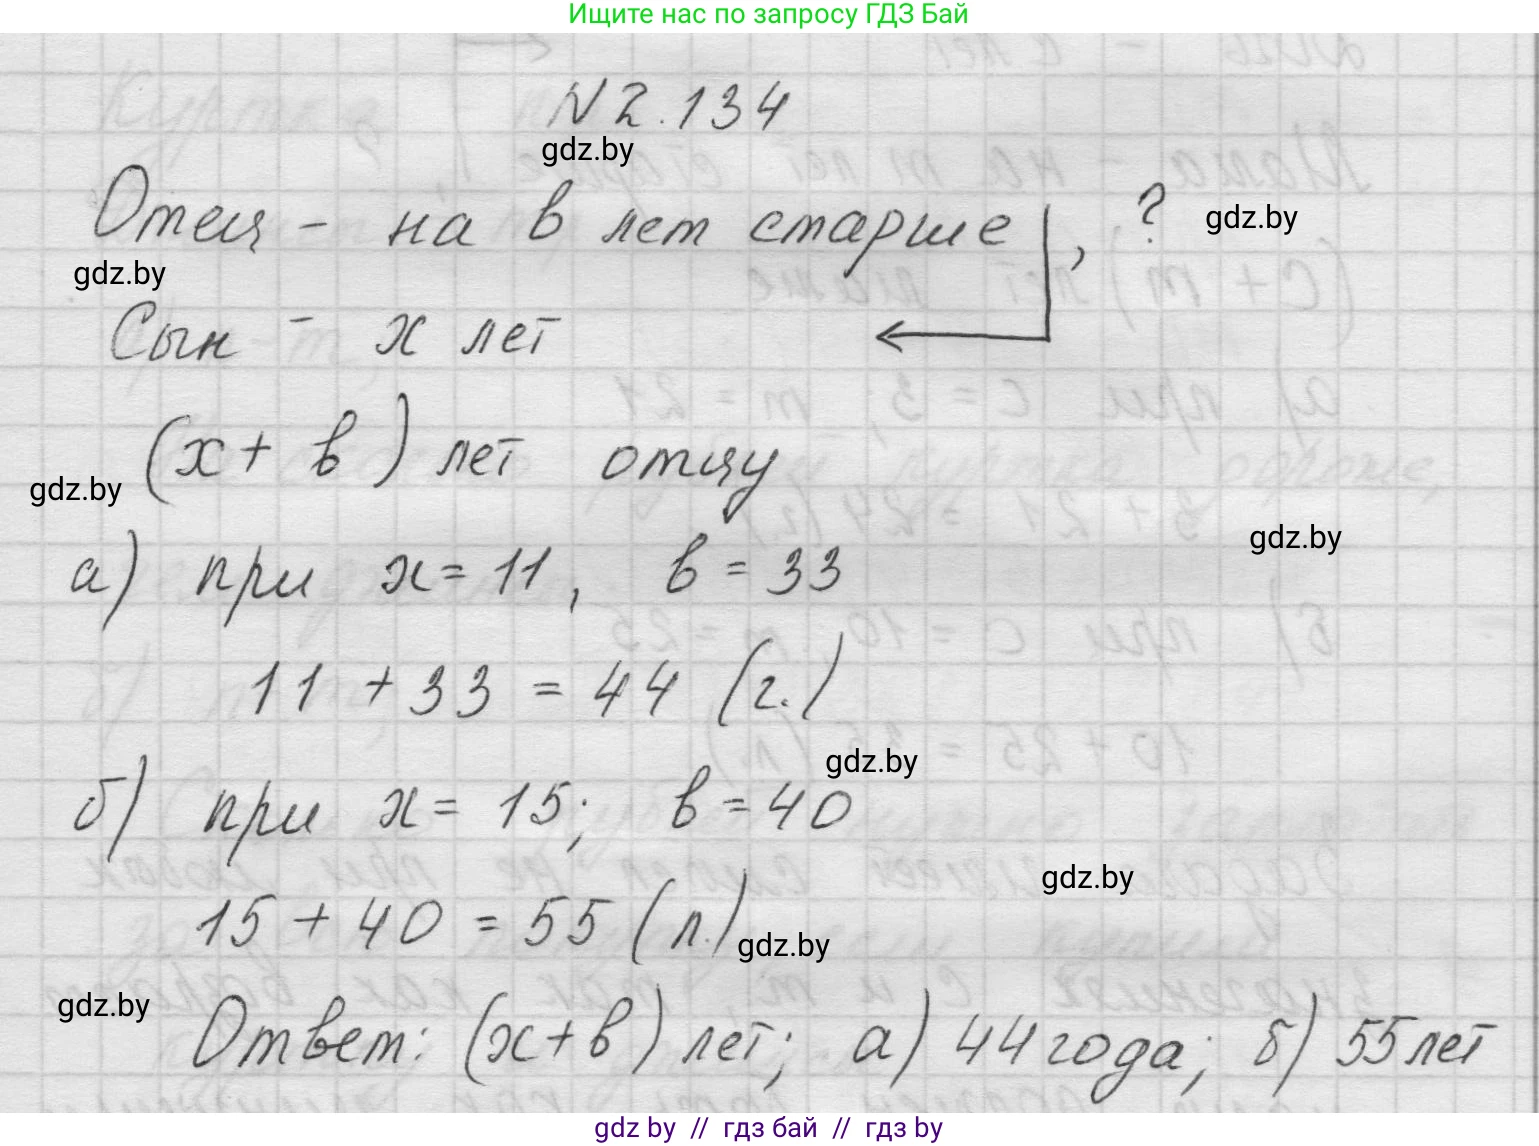 Ищите нас по запросу ГДЗ Бай
N 2.134
gdz.by
Отец - на в лет старше, ?
gdz.by
gdz.by
Сын - х лет
(х + в) лет отцу
gdz.by
gdz.by
а) при х = 11, в = 33
11 + 33 = 44 (г.)
gdz.by
б) при х = 15; в = 40
gdz.by
15 + 40 = 55 (л.)
gdz.by
gdz.by
Ответ: (х + в) лет; а) 44 года; б) 55 лет
gdz.by // гдз бай // гдз by